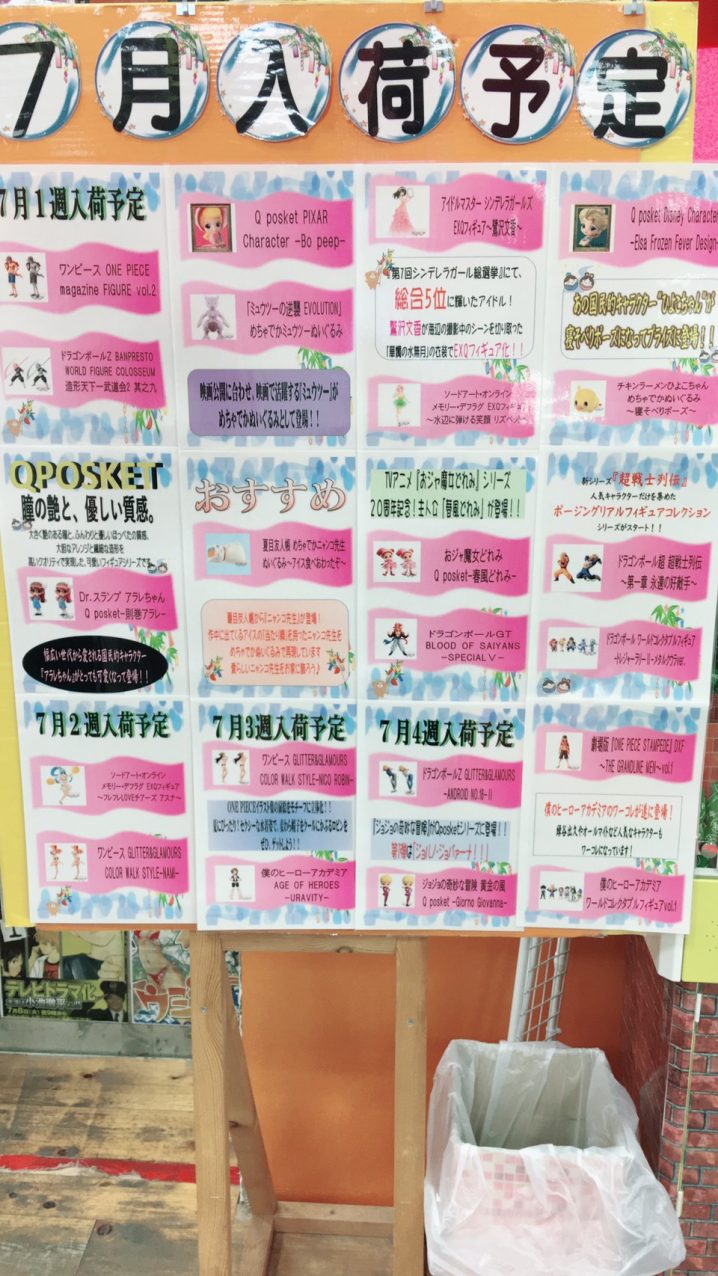 7月入荷予定
7月1週入荷予定
ワンピース ONE PIECE
magazine FIGURE vol.2
ドラゴンボールZ BANPRESTO
WORLD FIGURE COLOSSEUM
造形天下一武道会2 其之九
Q posket PIXAR
Character -Bo peep-
「ミュウツーの逆襲 EVOLUTION」
めちゃでかミュウツーぬいぐるみ
映画公開に合わせ、映画で活躍する「ミュウツー」が
めちゃでかぬいぐるみとして登場！！
アイドルマスター シンデレラガールズ
EXQフィギュア〜鷺沢文香〜
『第7回シンデレラガール総選挙』にて、
総合5位に輝いたアイドル！
鷺沢文香が海辺の撮影中のシーンを切り取った
「華燭の水無月」の衣装でEXQフィギュア化！！
ソードアート・オンライン
メモリー・デフラグ EXQフィギュア
〜水辺に弾ける笑顔 リズベット〜
Q posket Disney Character
-Elsa Frozen Fever Design-
あの国民的キャラクター"ひよこちゃん"が
寝そべりポーズになってプライズに登場！！
チキンラーメンひよこちゃん
めちゃでかぬいぐるみ
〜寝そべりポーズ〜
QPOSKET
瞳の艶と、優しい質感。
大きく艶のある瞳と、ふんわりと優しいほっぺたの質感、
大胆なアレンジと繊細な造形を
高いクオリティで実現した、可愛いフィギュアシリーズです
Dr.スランプ アラレちゃん
Q posket-則巻アラレ-
幅広い世代から愛される国民的キャラクター
『アラレちゃん』がとっても可愛くなって登場！！
おすすめ
夏目友人帳 めちゃでかニャンコ先生
ぬいぐるみ〜アイス食べおわったぞ〜
夏目友人帳から『ニャンコ先生』が登場！
作中に出てくるアイスの「当たり棒」を持つたニャンコ先生を
めちゃでかぬいぐるみで再現しています
愛らしいニャンコ先生をお家に飾ろう♪
TVアニメ『おジャ魔女どれみ』シリーズ
20周年記念！主人公「春風どれみ」が登場！！
おジャ魔女どれみ
Q posket-春風どれみ-
ドラゴンボールGT
BLOOD OF SAIYANS
-SPECIALⅤ-
新シリーズ『超戦士列伝』
人気キャラクターだけを集めた
ポージングリアルフィギュアコレクション
シリーズがスタート！！
ドラゴンボール超 超戦士列伝
〜第一章 永遠の好敵手〜
ドラゴンボール ワールドコレクタブルフィギュア
-トレジャーラリーⅡ-メタルクウラver.
7月2週入荷予定
ソードアート・オンライン
メモリー・デフラグ EXQフィギュア
〜フレフレLOVEチアーズ アスナ〜
ワンピース GLITTER&GLAMOURS
COLOR WALK STYLE-NAMI-
7月3週入荷予定
ワンピース GLITTER&GLAMOURS
COLOR WALK STYLE-NICO ROBIN-
ぜひ、ゲットしよう！！
僕のヒーローアカデミア
AGE OF HEROES
-URAVITY-
7月4週入荷予定
ドラゴンボールZ GLITTER&GLAMOURS
-ANDROID NO.18-Ⅱ
『ジョジョの奇妙な冒険』がQposketシリーズに登場！！
第1弾は「ジョルノ・ジョバァーナ」！！
ジョジョの奇妙な冒険 黄金の風
Q posket -Giorno Giovanna-
劇場版『ONE PIECE STAMPEDE』DXF
〜THE GRANDLINE MEN〜vol.1
僕のヒーローアカデミアのワーコレが遂に登場！
緑谷出久やオールマイトなど人気なキャラクターも
ワーコレになっています！
僕のヒーローアカデミア
ワールドコレクタブルフィギュアvol.1
テレビドラマ化